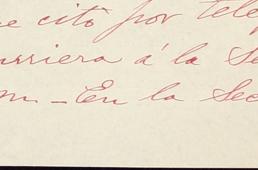 e citó por telé
urriera á la Se
m - En la Sec